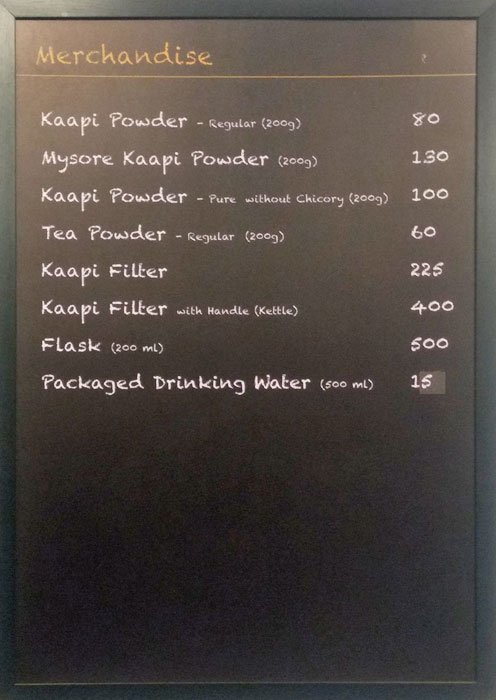 Merchandise
Kaapi Powder - Regular (200g) 80
Mysore Kaapi Powder (200g) 130
Kaapi Powder - Pure without Chicory (200g) 100
Tea Powder - Regular (200g) 60
Kaapi Filter 225
Kaapi Filter with Handle (Kettle) 400
Flask (200 ml) 500
Packaged Drinking Water (500 ml) 15